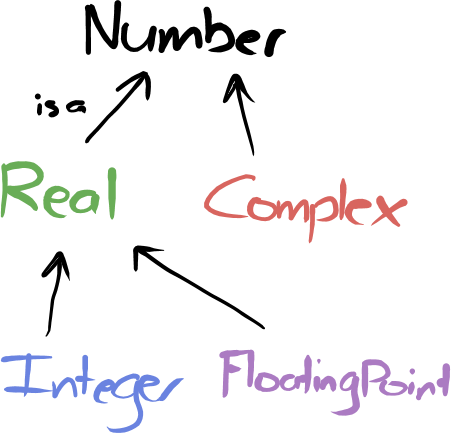 Number
is a
Real Complex
Integer FloatingPoint